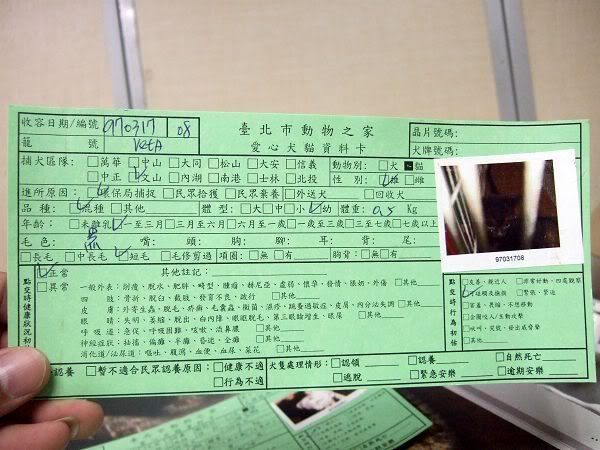 收容日期/編號 970317 08 臺北市動物之家 晶片號碼:
籠號 VetA 愛心犬貓資料卡 犬牌號碼:
捕犬區隊: □萬華 □中山 □大同 □松山 □大安 □信義 動物別: □犬 ■貓
□中正 □文山 □內湖 □南港 □士林 □北投 性別: □雄 □雌
進所原因: □環保局捕捉 □民眾拾獲 □民眾棄養 □外送犬 □回收犬
品種: □混種 □其他 體型: □大 □中 □小 □幼 體重: 0.5 Kg
年齡: □未離乳 □一至三月 □三至六月 □六月至一歲 □一歲至三歲 □三至七歲 □七歲以上
毛色: 黑 嘴: 頭: 胸: 腳: 耳: 背: 尾:
□長毛 □中長毛 □短毛 □毛修剪過 項圈: □無 □有 胸背: □無 □有
97031708
點交時健康狀況初 □正常 其他註記:
□異常 一般外表: 削瘦、脫水、肥胖、畸型、腫瘤、赫尼亞、虛弱、懷孕、發情、脹奶、外傷 □其他
四肢: 骨折、脫臼、截肢、發育不良、跛行 □其他
皮膚: 外寄生蟲、脫毛、疥癬、毛囊蟲、黴菌、濕疹、跳蚤過敏症、皮膚、內分泌失調 □其他
眼睛: 失明、萎縮、脫出、白內障、眼瞼脫毛、第三眼瞼增生、眼屎 □其他
呼吸道: 急促、呼吸困難、咳嗽、流鼻膿 □其他
神經症狀: 抽搐、偏癱、半癱、昏迷、全癱 □其他
消化道/泌尿道: 嘔吐、腹瀉、血便、血尿、菜花 □其他
點交時行為初估 □友善、親近人 □非常好動、四處觀察
□可碰觸及撫摸 □緊張、緊迫
□害羞、畏懼、不想移動
□企圖咬人/主動攻擊
□吠叫、哭號、發出威脅聲
□其他
認養 □暫不適合民眾認養原因: □健康不適 □行為不適
犬隻處理情形: □認領 □認養 □自然死亡
□逃脫 □緊急安樂 □逾期安樂